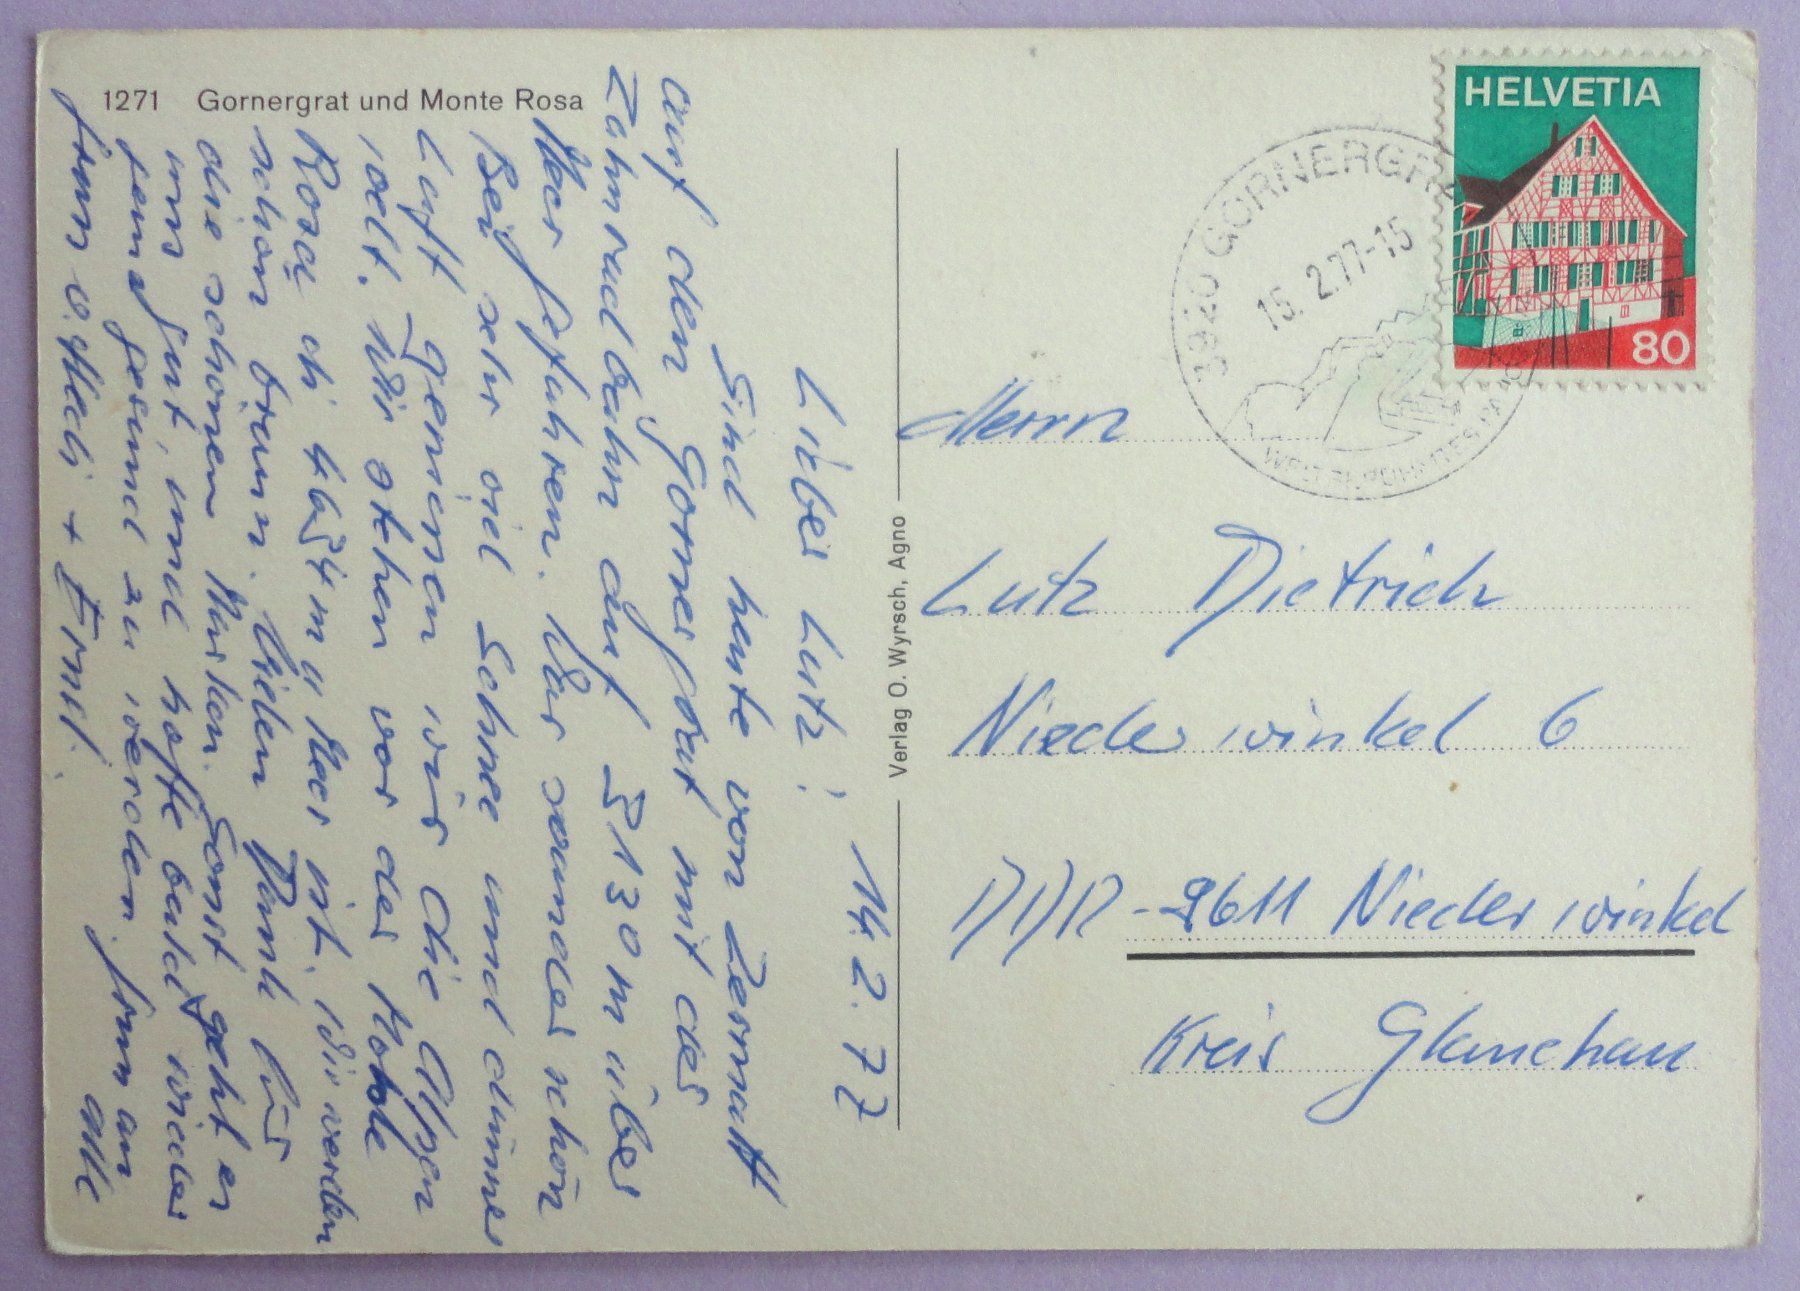 1271 Gornergrat und Monte Rosa
14.2.77
Lieber Lutz!
Sind heute von Zermatt
auf den Gornergrat mit der
Zahnradbahn auf 3130 m über
Meer gefahren. War wunderschön
Bei sehr viel Schnee und dünner
Luft genienen wir die Alpen
welt. Wir stehen vor der Monte
Rosa di 4634 m ü Meer ist. Wir werden
schon braun. Vielen Dank für
die schönen Marken. Sonst geht es
uns gut, und hoffe bald wieder
ganz gesund zu werden.
alle
Hedi + Ernst.
Verlag O. Wyrsch, Agno
HELVETIA
80
3920 GORNERGRAT
15.2.77-15
Herrn
Lutz Dietrich
Niederwinkel 6
DDR-9611 Niederwinkel
Kreis Glauchau